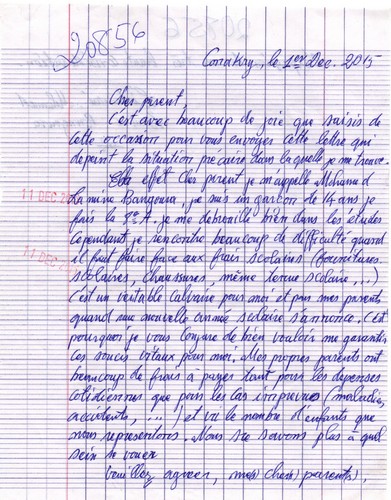 20856
Conakry, le 1er Dec. 2015
Cher parent,
C'est avec beaucoup de joie que saisis de
cette occasion pour vous envoyer cette lettre qui
depeint la situation precaire dans laquelle je me trouve.
effet Cher parent je m'appelle Mohamed
Lamine Bangoura, je suis un garçon de 14 ans je
fais la A. je me debrouille bien dans les études
Cependant je rencontre beaucoup de difficulté quand
il faut faire face aux frais scolaires (Fournitures
scolaires, chaussures, même tenue scolaire,...)
C'est un veritable calvaire pour moi et pour mes parents
quand une nouvelle année scolaire s'annonce. C'est
pourquoi je vous conjure de bien vouloir me garantir
ces soucis vitaux pour moi. Mes propres parents ont
beaucoup de frais a payer tant pour les depenses
cotidiennes que pour les cas imprevus (maladies,
accidents, ...) et vu le nombre d'enfants que
nous representons. Nous ne savons plus a quel
sein se vouer
Veuillez agréer, mes chers parents,
11 DEC 20
11 DEC 20